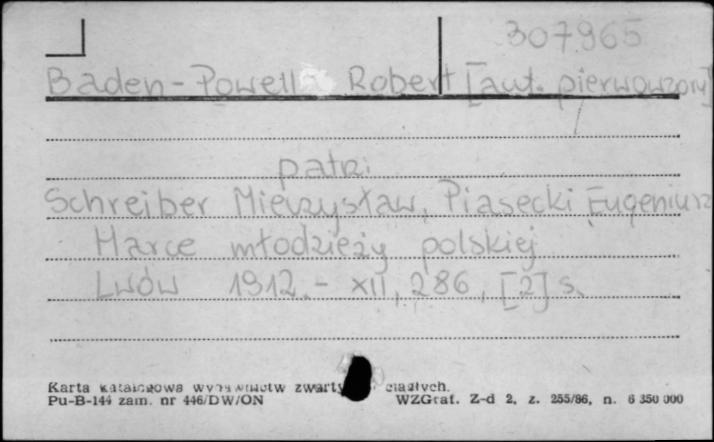 307965
Baden-Powell Robert [aut. pierwowzoru]
patrz
Schreiber Mieczysław, Piasecki Eugeniusz
Harce młodzieży polskiej
Lwów 1912.- XII, 286, [2] s.
Karta katalogowa wydawnictw zwartych ciągłych.
Pu-B-144 zam. nr 446/DW/ON WZGraf. Z-d 2, z. 255/86, n. 6 350 000